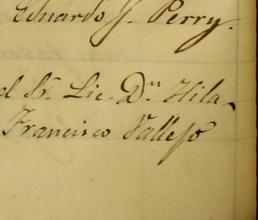 Eduardo J. Perry.
d Sr. Lic. Dn. Hila-
Francisco Vallejo